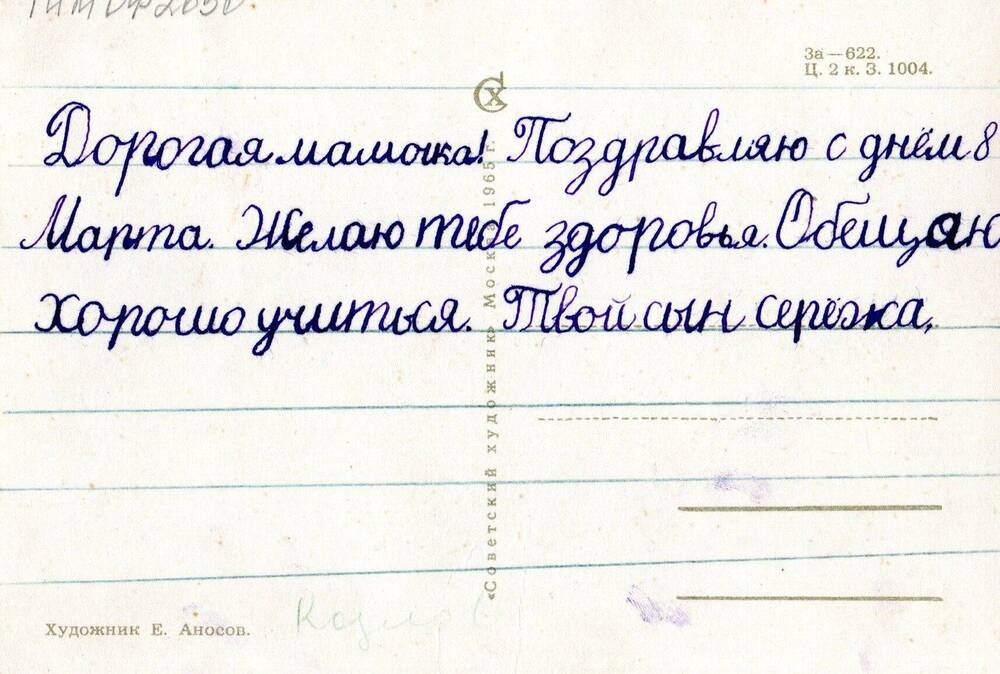 За — 622.
Ц. 2 к. З. 1004.
Дорогая мамочка! Поздравляю с днём 8
Марта. Желаю тебе здоровья. Обещаю
хорошо учиться. Твой сын серёжка.
«Советский художник» Москва 1965 г.
Художник Е. Аносов.
Козлов